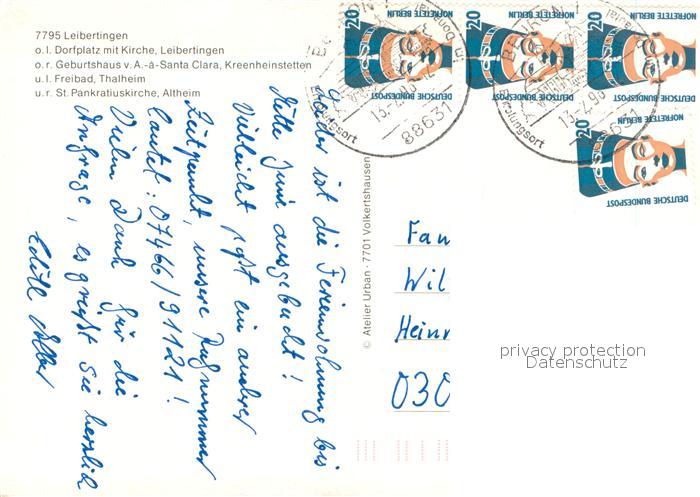 7795 Leibertingen
o. l. Dorfplatz mit Kirche, Leibertingen
o. r. Geburtshaus v. A.-á-Santa Clara, Kreenheinstetten
u. l. Freibad, Thalheim
u. r. St. Pankratiuskirche, Altheim
Leider ist die Ferienwohnung bis
Mitte Juni ausgebucht!
Vielleicht paßt ein anderer
Zeitpunkt, unsere Rufnummer
lautet: 07466/91121!
Vielen Dank für die
Anfrage, es grüßt Sie herzlich
Edith
© Atelier Urban · 7701 Volkertshausen
Fam
Wil
Heinr
030
20
NOFRETETE BERLIN
DEUTSCHE BUNDESPOST
20
NOFRETETE BERLIN
DEUTSCHE BUNDESPOST
20
NOFRETETE BERLIN
DEUTSCHE BUNDESPOST
20
NOFRETETE BERLIN
DEUTSCHE BUNDESPOST
BEURON
88631
Erholungsort
BEURON
88631
Erholungsort
privacy protection
Datenschutz